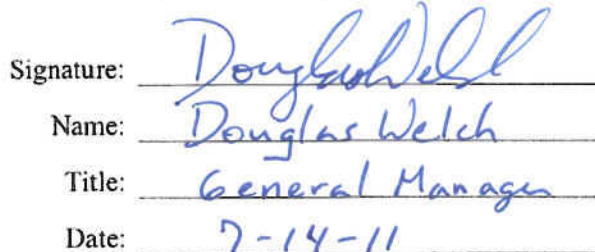 Signature: Douglas Welch
Name: Douglas Welch
Title: General Manager
Date: 7-14-11